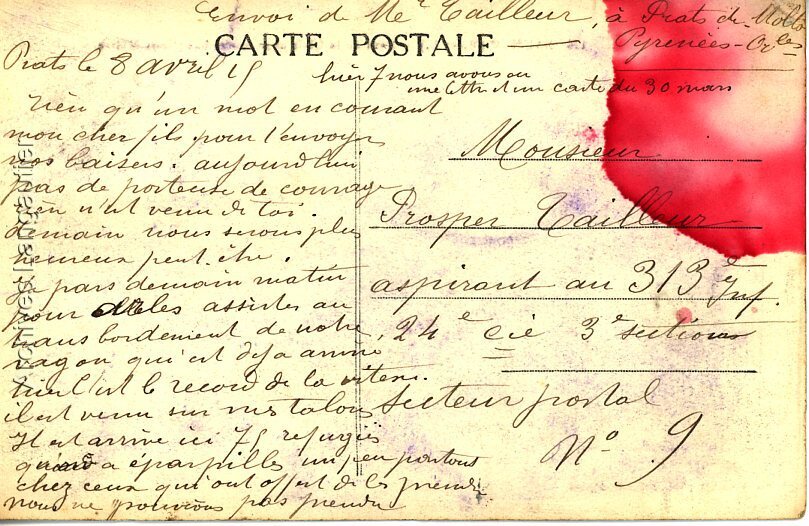 Envoi de Mr Tailleur, à Prats de Mollo
Pyrénées-Orles
CARTE POSTALE
Prats le 8 avril 15
hier 7 nous avons eu
une lettre et une carte du 30 mars
Rien qu'un mot en courant
mon cher fils pour t'envoyer
nos baisers. aujourd'hui
pas de porteuse de courage
rien n'est venu de toi.
demain nous serons plus
heureux peut être.
Je pars demain matin
pour Arles assister au
transbordement de notre
wagon qui est déja arrivé
hier c'est le record de la vitesse.
il est venu sur mes talons
Il est arrivé ici 75 refugiés
qu'on a éparpillés un peu partout
chez ceux qui ont offert de les prendre
nous ne pouvions pas prendre
Monsieur
Prosper Tailleur
aspirant au 313e Inf.
24e Cie 3e section
Secteur postal
No 9